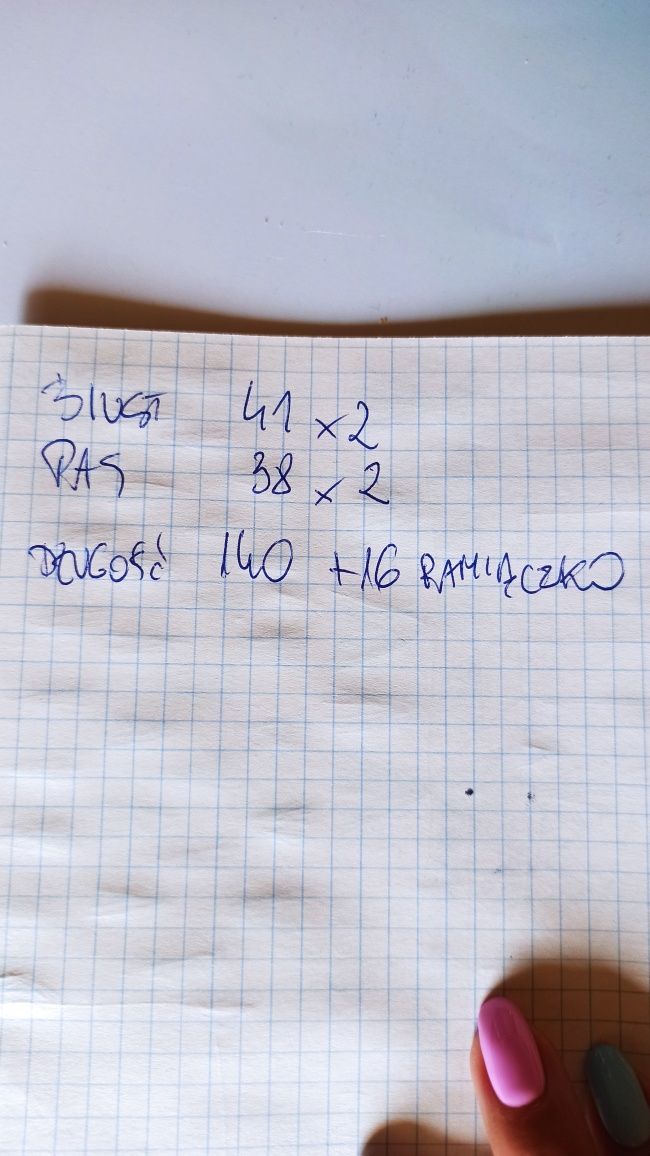 BIUST 41 x 2
PAS 38 x 2
DŁUGOŚĆ 140 +16 RAMIĄCZKO